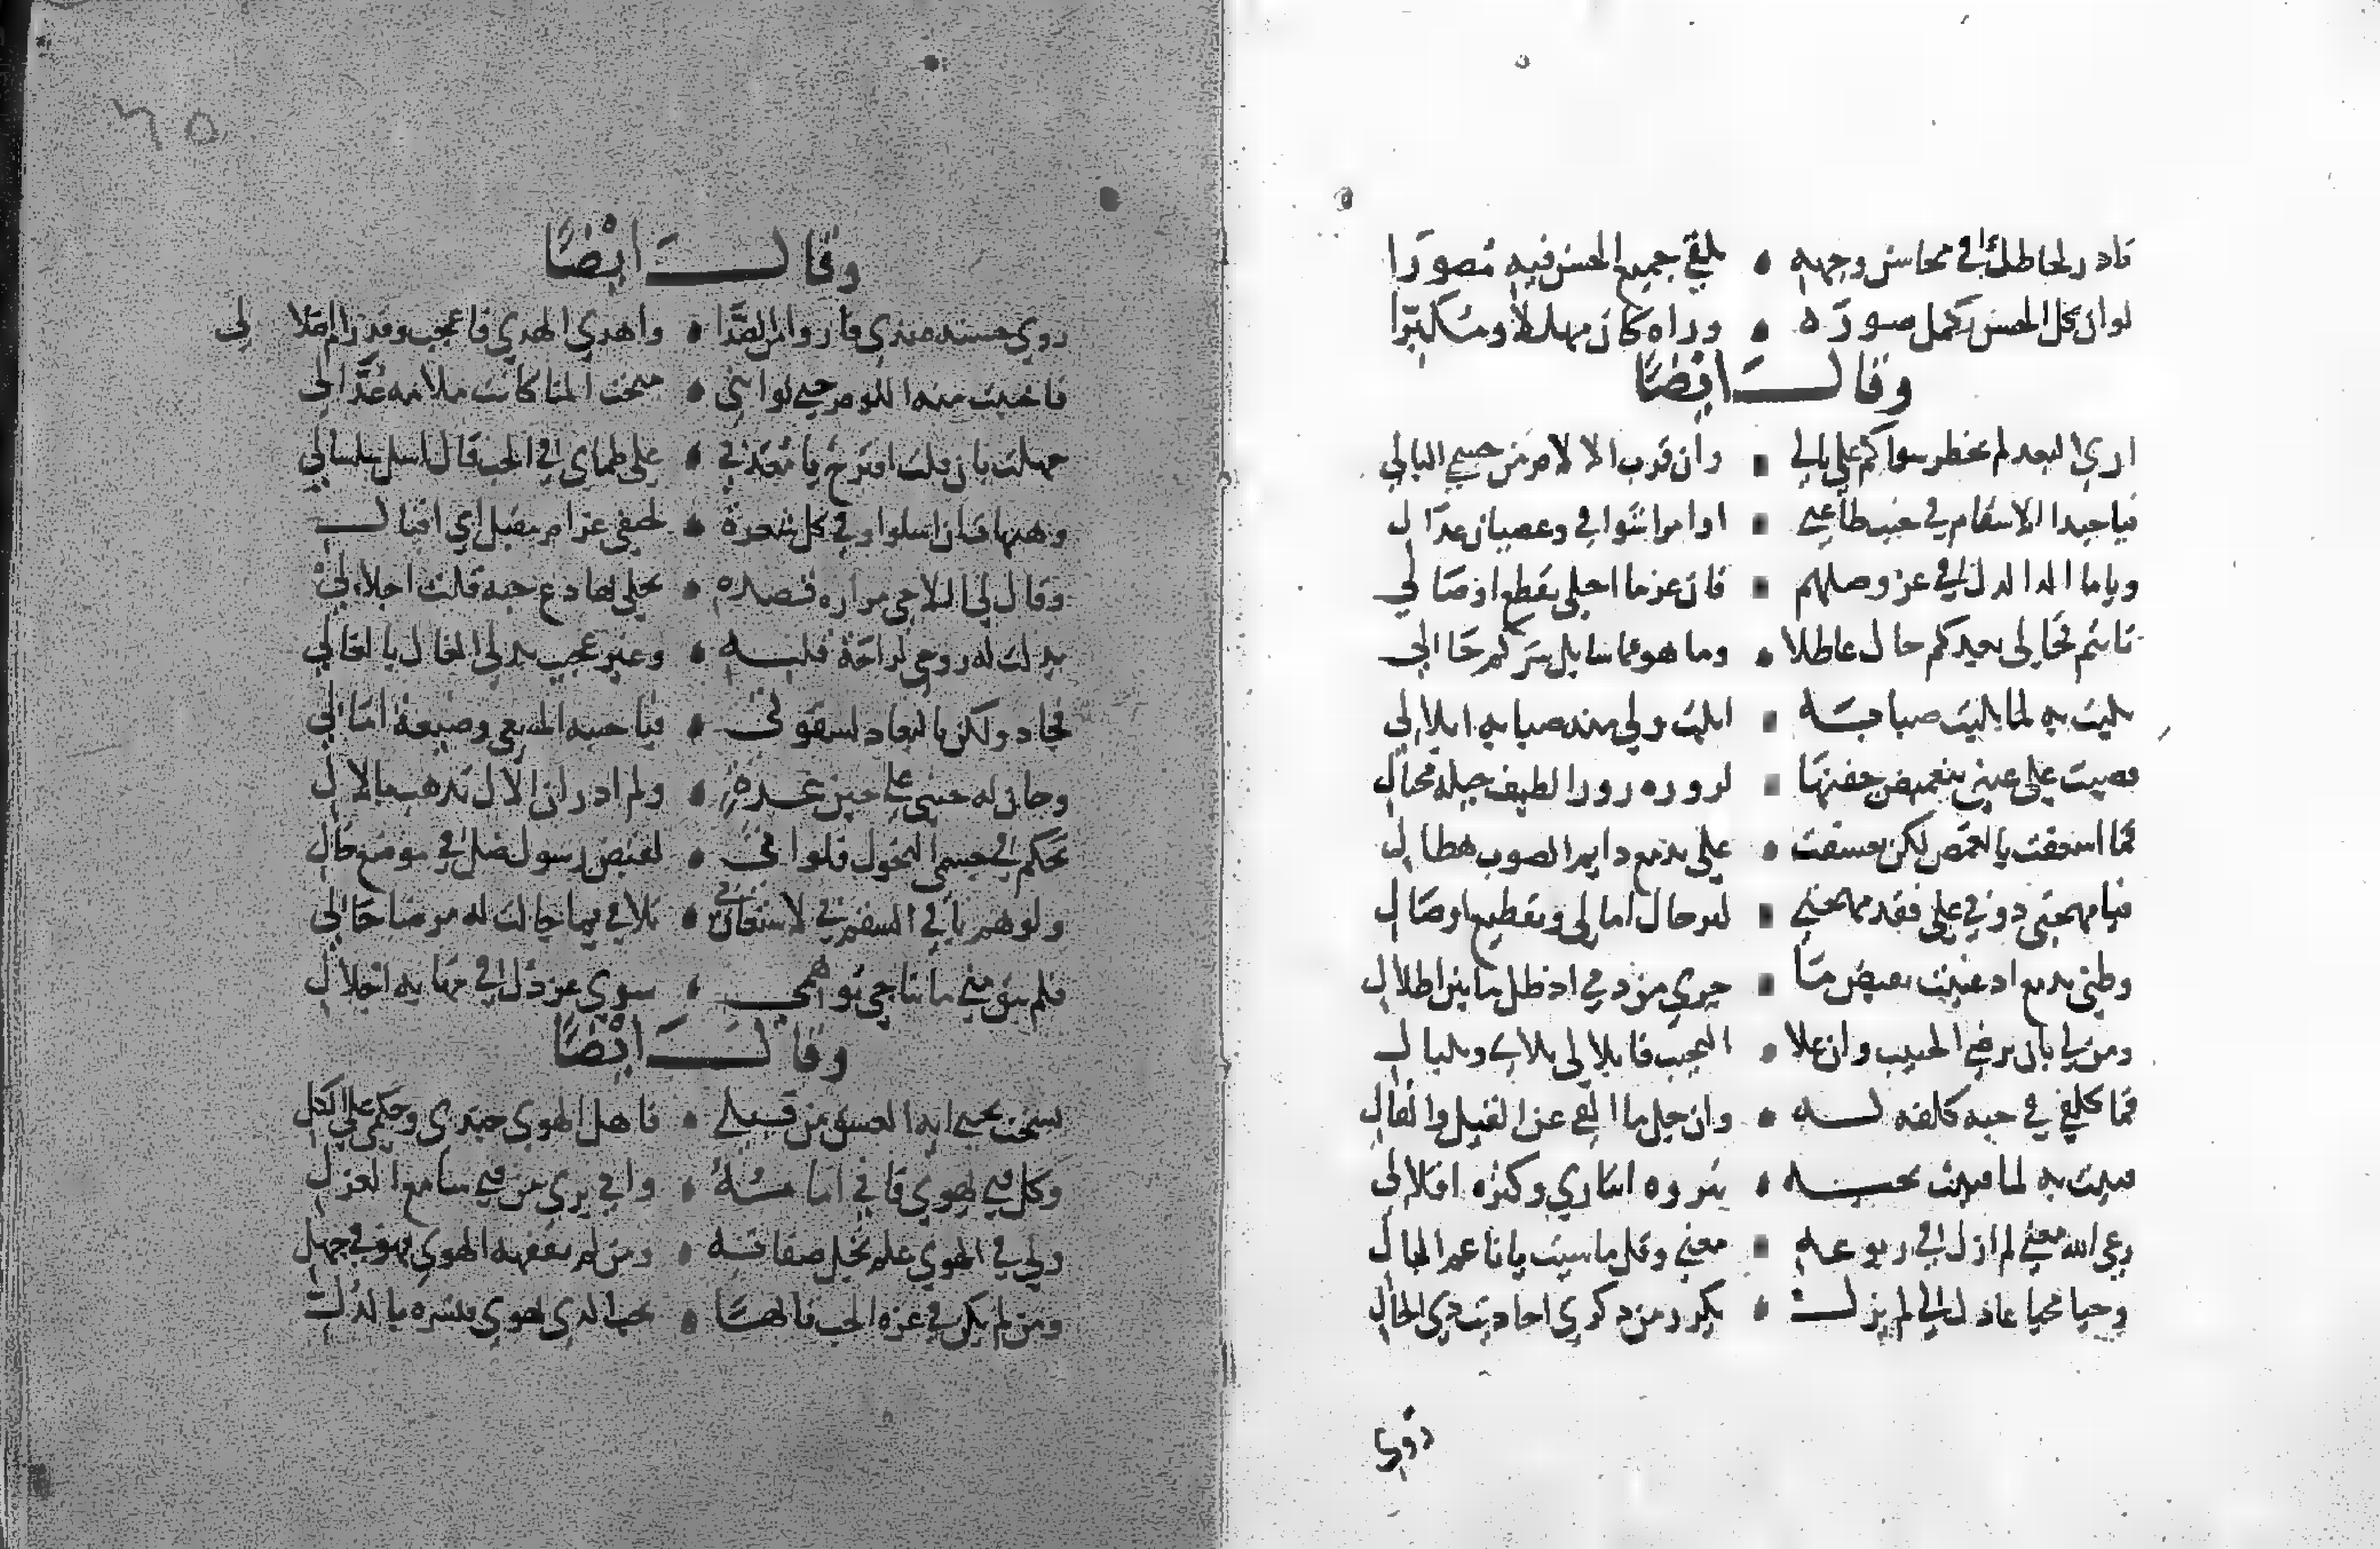 فادر لحاظك في محاسن وجهه • تلقى جميع الحسن فيه مصورا
لو ان كل الحسن يكمل صورة • وراه كان مهللا ومكبرا
وقال ايضا
ارى البعد لم يخطر سواكم على بالي • وان قرب الالام من جسمي البالي
فيا حبذا الاسقام في جنب طاعتي • اوامر اشواقي وعصيان عذال
ويا ما الذ الذل في عز وصلكم • وان عز ما احلى تقطع اوصالي
نايتم فحالي بعدكم حال عاطلا • وما هو مما سا بل سركم حالي
بليت به لما بليت صبابة • ابلت ولي منه صبابة ابلالي
نصبت على عيني بتغميض جفنها • لزورة زور الطيف حيلة محتال
فما اسعفت بالغمض لكن تعسفت • علي بدمع دايم الصوب هطال
فيا مهجتي ذوبي على فقد مهجتي • لترحال امالي وتقطيع اوصال
وظني بدمع اد غنيت بفيض ما • جرى من دمي اذ ظل ما بين اطلال
ومن لي بان يرضى الحبيب وان علا • النحيب فابلالي بلاي وبلبال
فما كلفي في حبه كلفة له • وان جل ما القى عن القيل والقال
فنيت به لما فنيت بحبه • بثروة ايثاري وكثرة اقلالي
رعى الله مغنى لم ازل في ربوعه • معنى وقل ما شيت يا ناعم البال
وحيا محيا عاذل لي لم يزل • يكرر من ذكرى احاديث ذي الخال
روى
٦٥
وقال ايضا
روى حسنه عندي فاروا من الصدا • واهدى الهدى فاعجب وقد رام اضلالي
فاحببت منه اللوم حتى لو انني • منحت المنا كانت ملامة عذالي
جهلت بان قلت اقترح يا معذبي • على ظماي في الحب قال اسل سلسالي
وهيهات ان اسلو وفي كل شعرة • لحتفي غرام مقبل اي اقبال
وقال لي اللاحي مرارة قصده • تحلى بها دع حبه قلت احلالي
بذلت له روحي لراحة قلبه • وغير عجيب بذلي الغال بالغالي
فجاد ولكن بالبعاد لشقوتي • فيا خيبة المسعى وضيعة امالي
وحان له حيني على حين غرة • ولم ادر ان الال تذهب بالال
تحكم في جسمي النحول فلو اتى • لقبض رسول ضل في موضع خال
ولو هم باقي السقم بي لاستعان في • تلافي بما حالت له من ضنا حالي
فلم يبق مني ما يناجي توهمي • سوى عز ذل في مهابة اجلال
وقال ايضا
نسخت بحبي اية العشق من قبلي • فاهل الهوى جندي وحكمي على الكل
وكل فتى يهوى فاني امامه • واني بري من فتى سامع العذل
ولي في الهوى علم تجل صفاته • ومن لم يفقهه الهوى فهو في جهل
ومن لم يكن في عزة الحب تايها • بحب الذي يهوى فبشره بالذل